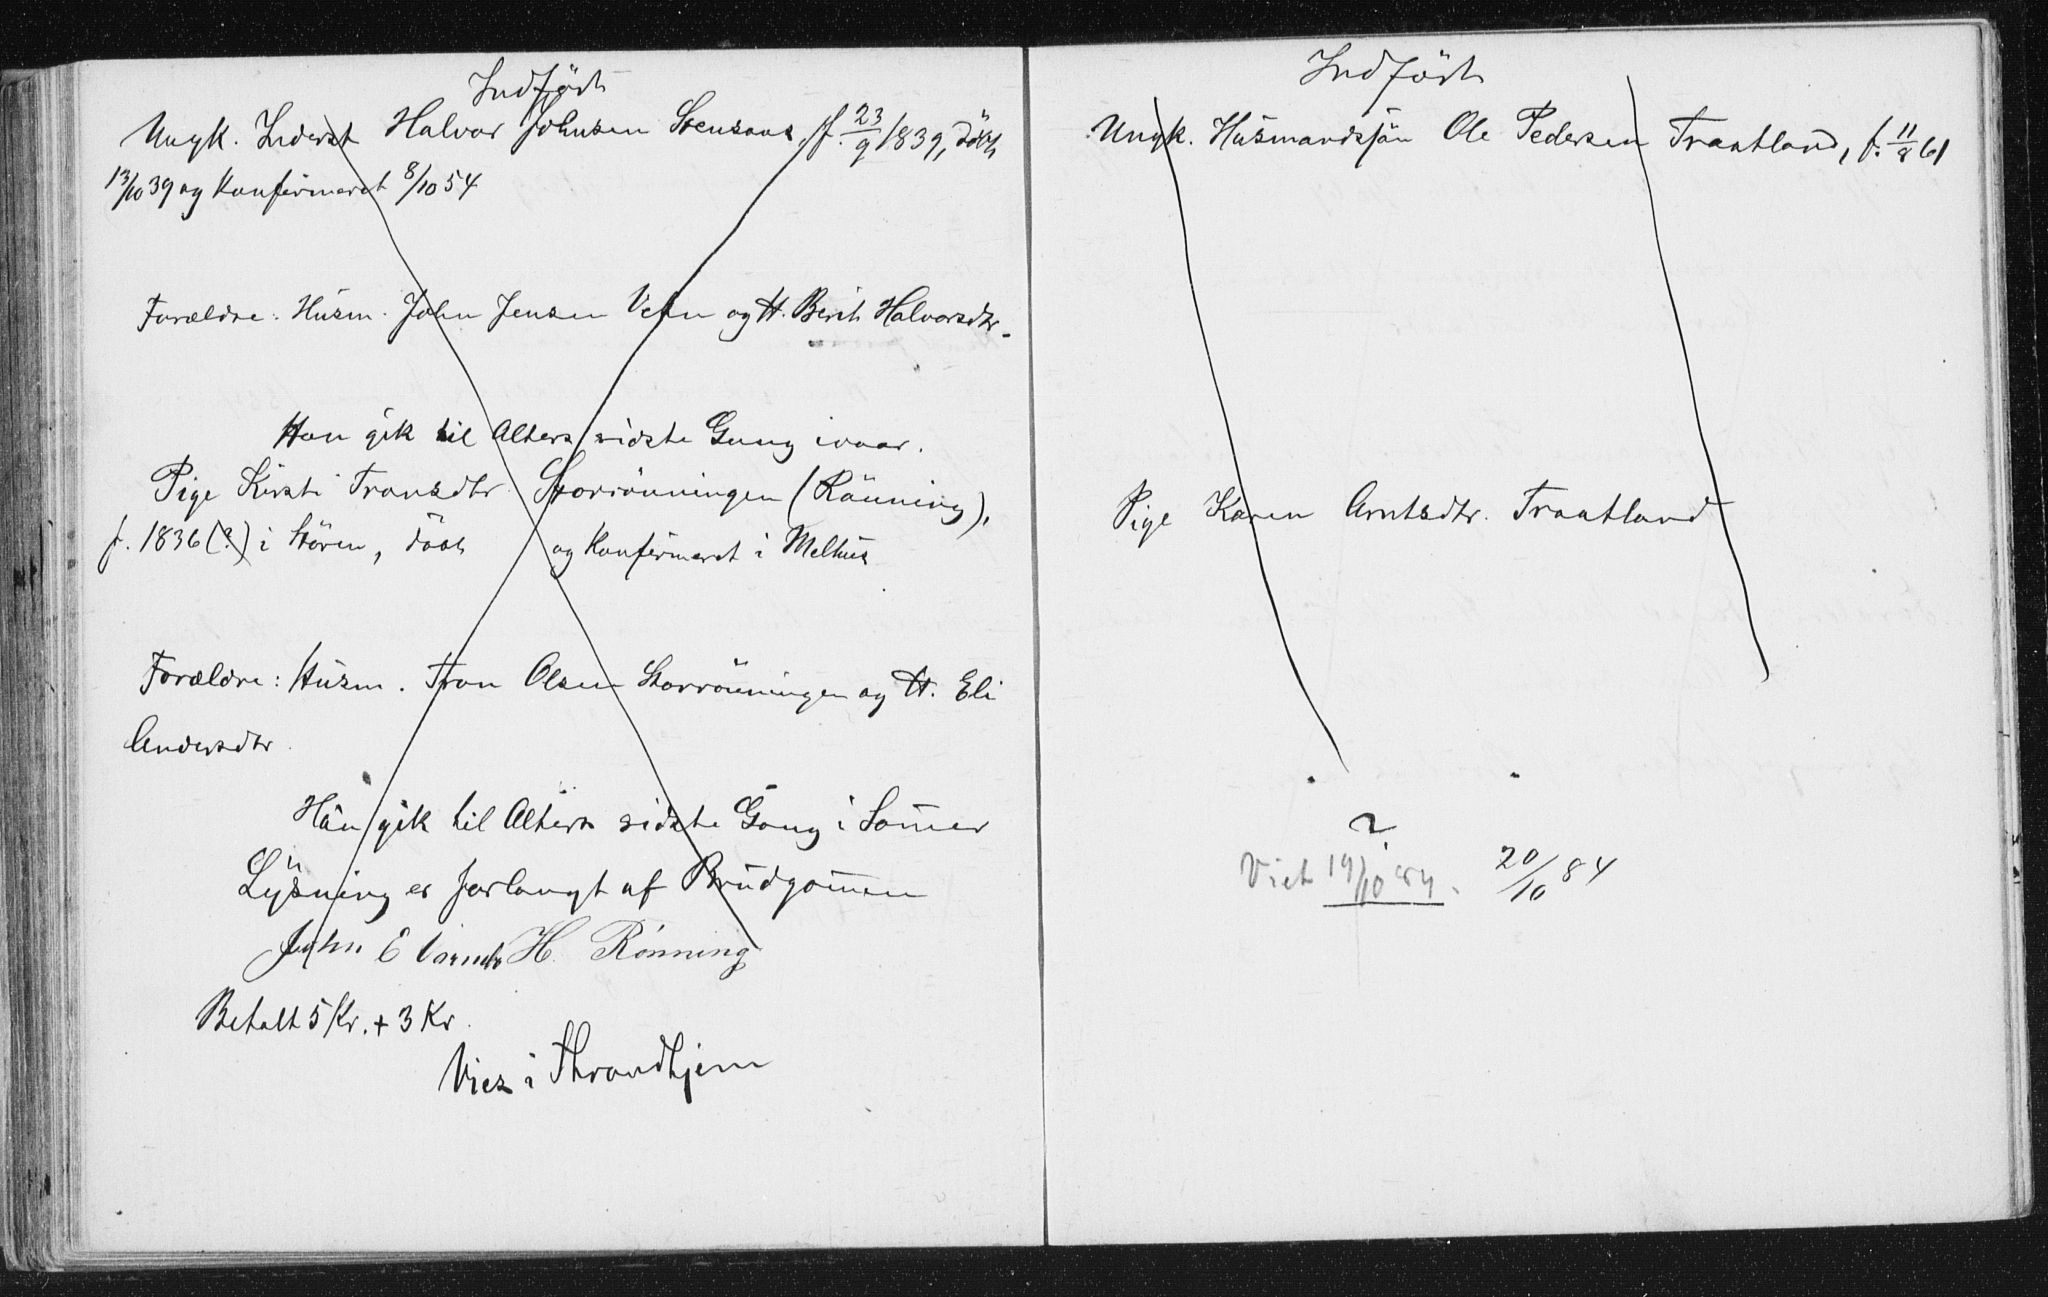 Indført
Ungk. Inderst Halvor Johnsen Stensaas, f. 23/9 1839, döbt
13/10 39 og Konfirmeret 8/10 54
Forældre: Husm. John Jensen og H. Berit Halvorsdtr.
Han gik til Alters sidste Gang ivaar.
Pige Kirsti Tronsdtr. Storrönningen (Rönning),
f. 1836 (?) i Stören, döbt og Konfirmeret i Melhus
Forældre: Husm. Tron Olsen Storrönningen og H. Eli
Andersdtr.
Hun gik til Alters sidste Gang i Som̄er
Lysning er forlangt af Brudgom̄en
John E H. Rönning
Betalt 5 Kr. + 3 Kr.
Vies i Throndhjem
Indført
Ungk. Husmandssön Ole Pedersen Traatland, f. 11/8 61
Pige Karen Arntsdtr. Traatland
?
Viet 19/10 84. 20/10 84